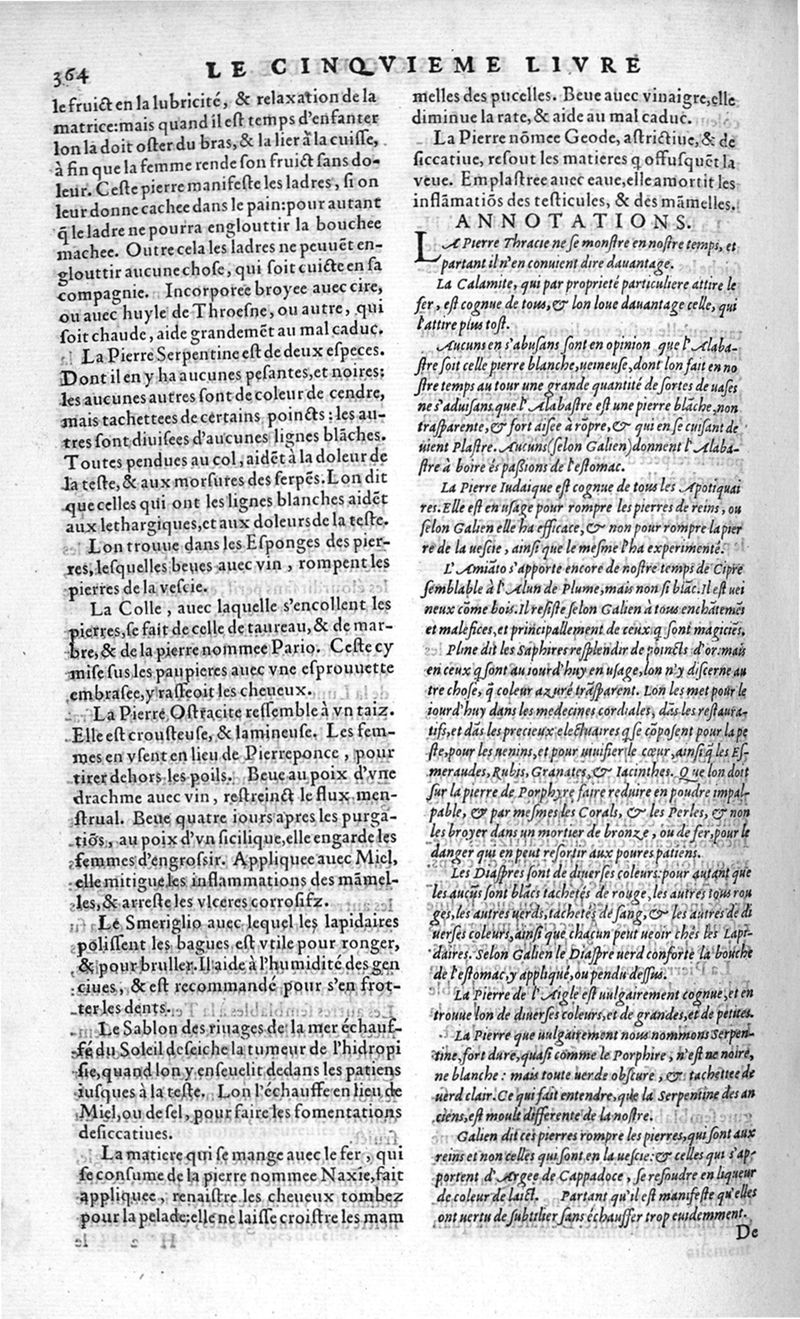 364
LE CINQVIEME LIVRE
le fruict en la lubricité, & relaxation de la
matrice:mais quand il est temps d'enfanter
lon la doit oster du bras,& la lier à la cuisse,
à fin que la femme rende son fruict sans do-
leur. Ceste pierre manifeste les ladres, si on
leur donne cachee dans le pain:pour autant
q̃ le ladre ne pourra englouttir la bouchee
machee. Outre cela les ladres ne peuuẽt en-
glouttir aucune chose, qui soit cuicte en sa
compagnie. Incorporee broyee auec cire,
ou auec huyle de Throesne, ou autre, qui
soit chaude, aide grandemẽt au mal caduc.
La Pierre Serpentine est de deux especes.
Dont il en y ha aucunes pesantes,et noires;
les aucunes autres sont de coleur de cendre,
mais tachettees de certains poincts : les au-
tres sont diuisees d'aucunes lignes blãches.
Toutes pendues au col, aidẽt à la doleur de
la teste, & aux morsures des serpẽs. Lon dit
que celles qui ont les lignes blanches aidẽt
aux lethargiques,et aux doleurs de la teste.
Lon trouue dans les Esponges des pier-
res, lesquelles beues auec vin, rompent les
pierres de la vescie.
La Colle, auec laquelle s'encollent les
pierres, se fait de celle de taureau, & de mar-
bre, & de la pierre nommee Pario. Ceste cy
mise sus les paupieres auec vne esprouuette
embrasee, y rasseoit les cheueux.
La Pierre Ostracite ressemble à vn taiz.
Elle est crousteuse, & lamineuse. Les fem-
mes en vsent en lieu de Pierreponce , pour
tirer dehors les poils. Beue au poix d'vne
drachme auec vin, restreinct le flux men-
strual. Beue quatre iours apres les purga-
tiõs, au poix d'vn sicilique,elle engarde les
femmes d'engrossir. Appliquee auec Miel,
elle mitigue les inflammations des mãmel-
les, & arreste les vlceres corrosifz.
Le Smeriglio auec lequel les lapidaires
polissent les bagues est vtile pour ronger,
& pour bruller. Il aide à l'humidité des gen
ciues, & est recommandé pour s'en frot-
ter les dents.
Le Sablon des riuages de la mer échauf-
fé du Soleil deseiche la tumeur de l'hidropi
sie, quand lon y enseuelit dedans les patiens
iusques à la teste. Lon l'échauffe en lieu de
Miel, ou de sel, pour faire les fomentations
desiccatiues.
La matiere qui se mange auec le fer, qui
se consume de la pierre nommee Naxie,fait
appliquee, renaistre les cheueux tombez
pour la pelade:elle ne laisse croistre les mam
melles des pucelles. Beue auec vinaigre,elle
diminue la rate, & aide au mal caduc.
La Pierre nõmee Geode, astrictiue, & de
siccatiue, resout les matieres q offusquẽt la
veue. Emplastree auec eaue,elle amortit les
inflãmatiõs des testicules, & des mãmelles.
ANNOTATIONS.
LA Pierre Thracie ne se monstre en nostre temps, et
partant il n'en conuient dire dauantage.
La Calamite, qui par proprieté particuliere attire le
fer, est cognue de tous,& lon loue dauantage celle, qui
l'attire plus tost.
Aucuns en s'abusans sont en opinion que l'Alaba-
stre soit celle pierre blanche,ueineuse, dont lon fait en no
stre temps au tour une grande quantité de sortes de uases
ne s'aduisans,que l'Alabastre est une pierre blãche,non
trãsparente,& fort aisee à rõpre, & qui en se cuisant de
uient Plastre. Aucuns (selon Galien) donnent l'Alaba-
stre à boire és passions de l'estomac.
La Pierre Iudaique est cognue de tous les Apotiquai
res. Elle est en usage pour rompre les pierres de reins, ou
selon Galien elle ha efficace,& non pour rompre la pier
re de la uescie, ainsi que le mesme l'ha experimenté.
L'Amiãto s'apporte encore de nostre temps de Cipre
semblable à l'Alun de Plume,mais non si blãc. Il est uei
neux cõme bois. Il resiste selon Galien à tous enchãtemẽs
et malefices, et principallement de ceux q̃ sont magiciẽs.
Pline dit les Saphires resplendir de poincts d'or: mais
en ceux q̃ sont au iourd'huy en usage, lon n'y discerne au
tre chose, q̃ coleur azuré trãsparent. Lon les met pour le
iourd'huy dans les medecines cordiales, dãs les restaura-
tifs,et dãs les precieux electuaires q se cõposent pour la pe
ste,pour les uenins, et pour uiuifier le cœur, ainsi q̃ les Es-
meraudes, Rubis, Granates, & Iacinthes. Que lon doit
sur la pierre de Porphyre faire reduire en poudre impal-
pable, & par mesmes les Corals, & les Perles, & non
les broyer dans un mortier de bronze, ou de fer, pour le
danger qui en peut resortir aux poures patiens.
Les Diaspres sont de diuerses coleurs: pour autant que
les aucũs sont blãcs tachetés de rouge, les autres tous rou
ges, les autres uerds, tachetés de sang, & les autres de di
uerses coleurs, ainsi que chacun peut ueoir chés les Lapi-
daires. Selon Galien le Diaspre uerd conforte la bouche
de l'estomac, y appliqué, ou pendu dessus.
La Pierre de l'Aigle est uulgairement cognue, et en
trouue lon de diuerses coleurs, et de grandes, et de petites.
La Pierre que uulgairement nous nommons Serpen-
tine, fort dure, quasi comme le Porphire, n'est ne noire,
ne blanche : mais toute uerde obscure, & tachettee de
uerd clair. Ce qui fait entendre, que la Serpentine des an
ciens, est moult differente de la nostre.
Galien dit ces pierres rompre les pierres, qui sont aux
reins et non celles qui sont en la uescie: & celles qui s'ap-
portent d'Argee de Cappadoce, se resoudre en liqueur
de coleur de laict. Partant qu'il est manifeste qu'elles
ont uertu de subtilier sans échauffer trop euidemment.
De